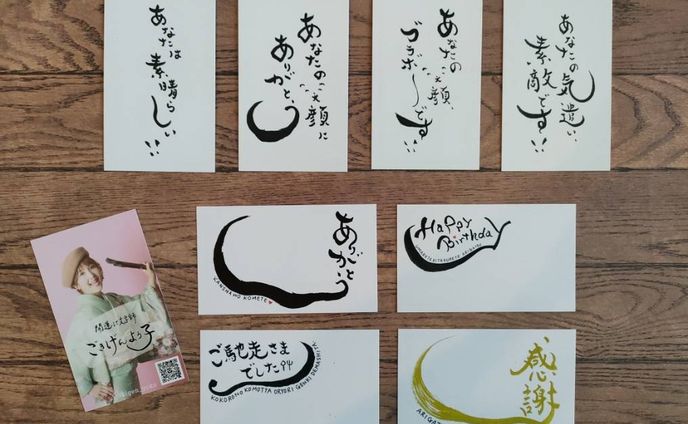 あなたは
素晴らしい!!
あなたの笑顔に
ありがとう
あなたの
笑顔、
ブラボーです!!
あなたの気遣い、
素敵です!!
ありがとう
KANSHA WO KOMETE♥
Happy
Birthday
ご馳走さま
でした
KOKORONO KOMOTTA ORYORI GENKI DEMASHITA
感謝
ARIGA
ごきげんよう子